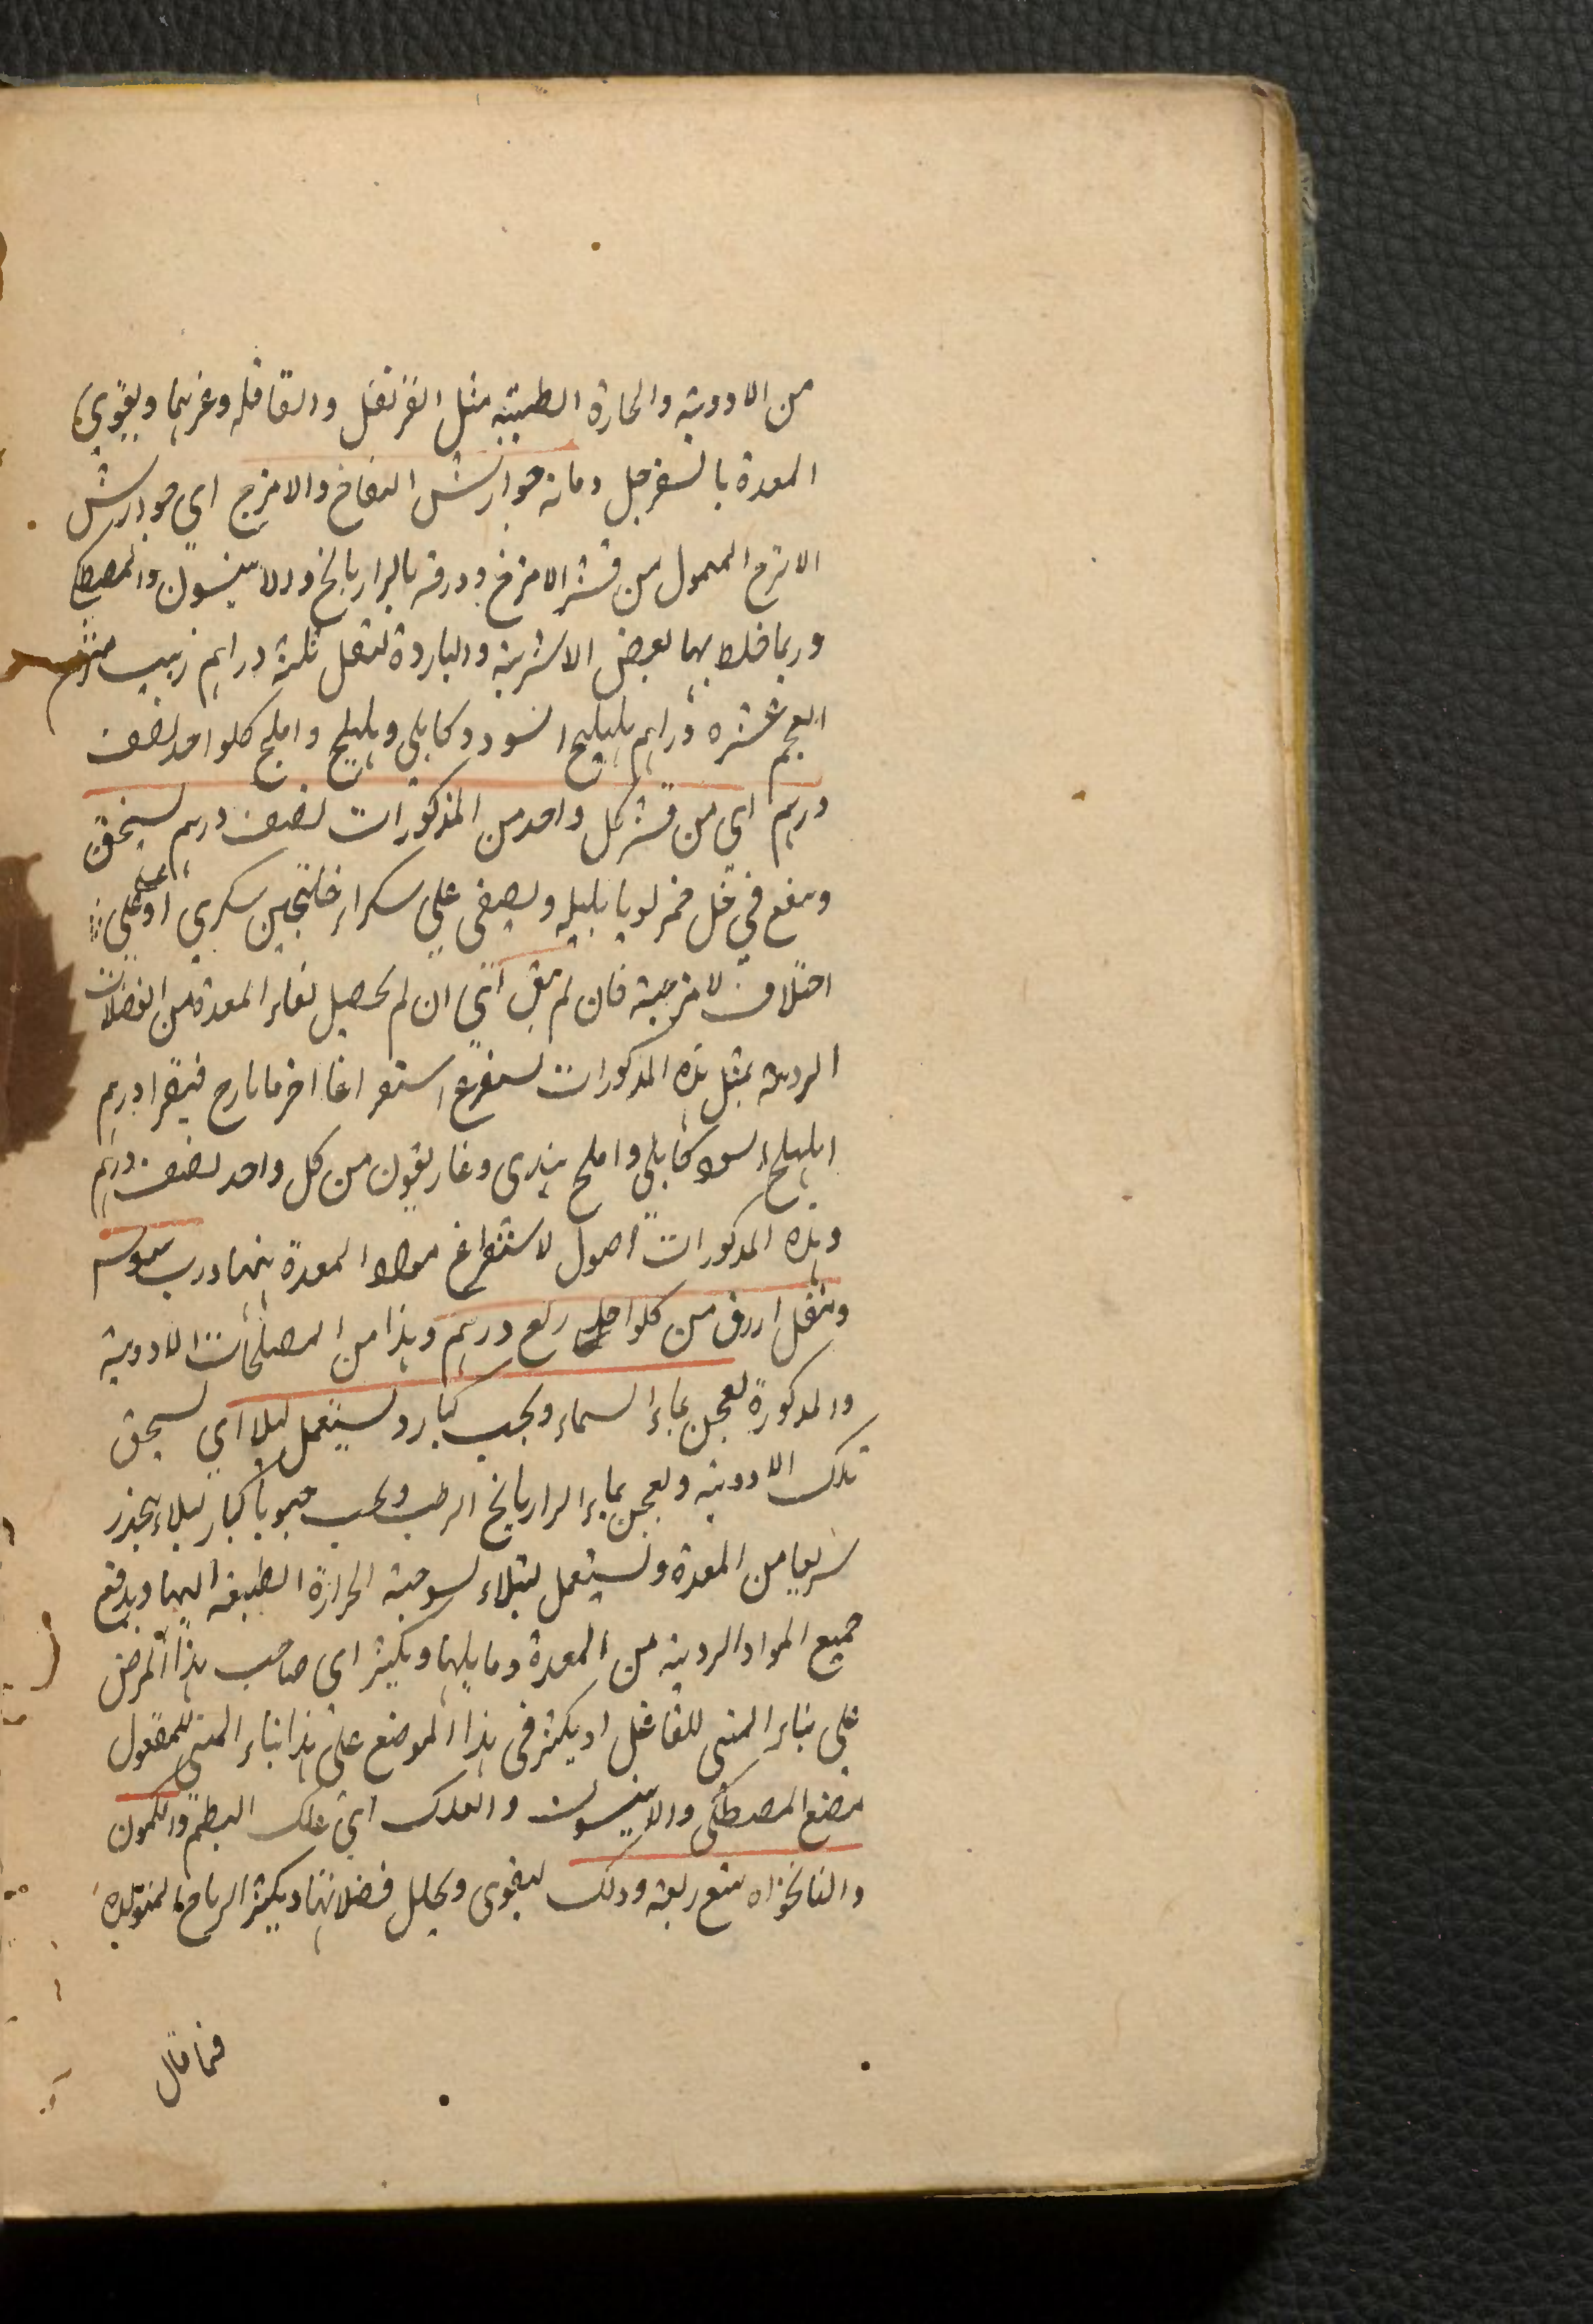 من الادوية والحارة الطيبة مثل القرنفل والقاقله وغيرها ويقوي
المعدة بالسفرجل ومائه جوارش التفاح والاترج اي جوارش
الاترج المعمول من قشر الاترج وورقه بالرازيانج والانيسون والمصطكي
وربما خلط بها بعض الاشربة والباردة لثقل ثلثة دراهم زبيب منزوع
العجم عشره دراهم هليلج اسود وكابلي وبليلج واملج كلواحد نصف
درهم اي من قشر كل واحد من المذكورات نصف درهم يسحق
وينقع في خل خمر لوبا بليله ويصفى علي سكر او خلنجبين سكري او علي
اختلاف الامزجية فان لم تنق اي ان لم يحصل نقاء المعدة من الفضلات
الردية بمثل هذه المذكورات يستفرغ استفراغا اخر بايارج فيقرا درهم
اهليلج اسود كابلي واملح هندي وغاريقون من كل واحد نصف درهم
وهذه المذكورات اصول لاستفراغ مواد المعدة ينهما ورب سوس
ومقل ازرق من كلواحد ربع درهم وهذا من المصلحات الادوية
والمذكورة يعجن بماء السماء ويحبب كبار ويستعمل ليلا اي يسحق
تلك الادوية ويعجن بماء الرازيانج الرطب ويحبب حبوبا كبار ليلا ينحدر
سريعا من المعدة ويستعمل ليلا لتوجه الحرارة الطبيعة اليها ويدفع
جميع المواد الردية من المعدة وما يليها ويكثر اي صاحب هذا المرض
على بناء المبني للفاعل او يكثر في هذا الموضع على هذا بناء المبني للمفعول
مضغ المصطكى والانيسون والعلك اي علك البطم والكمون
والنانخواه مع ريقه وذلك ليقوى ويحلل فضلاتها ويكثر الرياح المتولدة
فما قال